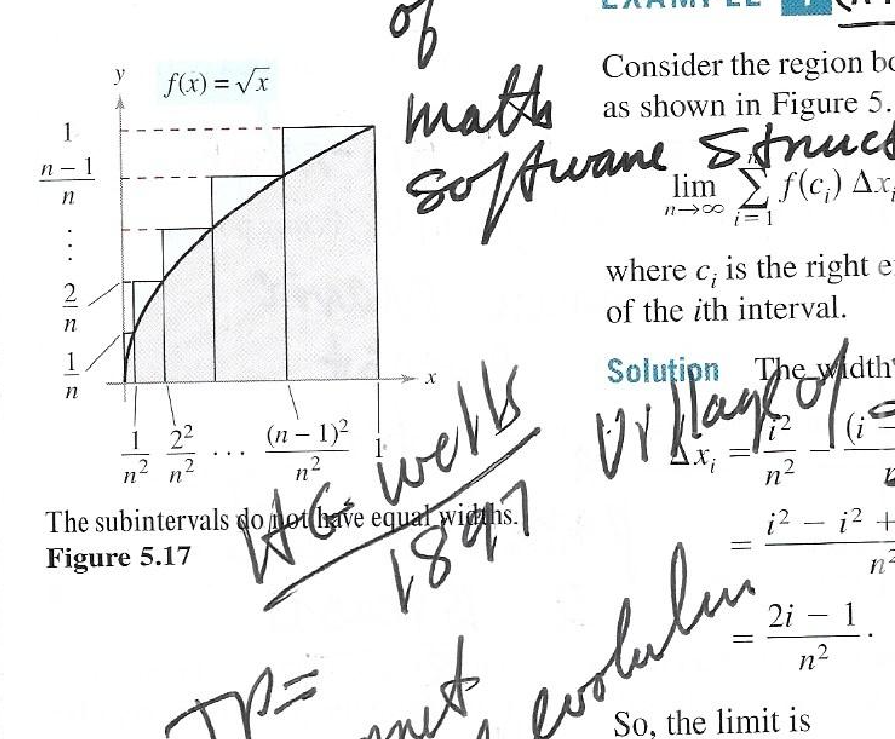 of
math
software Struct
y
f(x) = √x
1
n − 1
n
⋮
2
n
1
n
x
1 2² ⋯ (n − 1)² 1
n² n² n²
The subintervals do not have equal widths.
Figure 5.17
HG Wells
1897
IP=
evolution
EXAMPLE
Consider the region bo
as shown in Figure 5.
lim ∑ f(cᵢ) Δxᵢ
n→∞ i = 1
where cᵢ is the right e
of the ith interval.
Solution The width
Village of
Δxᵢ = i² − (i −
n²
= i² − i² +
n²
= 2i − 1 .
n²
So, the limit is